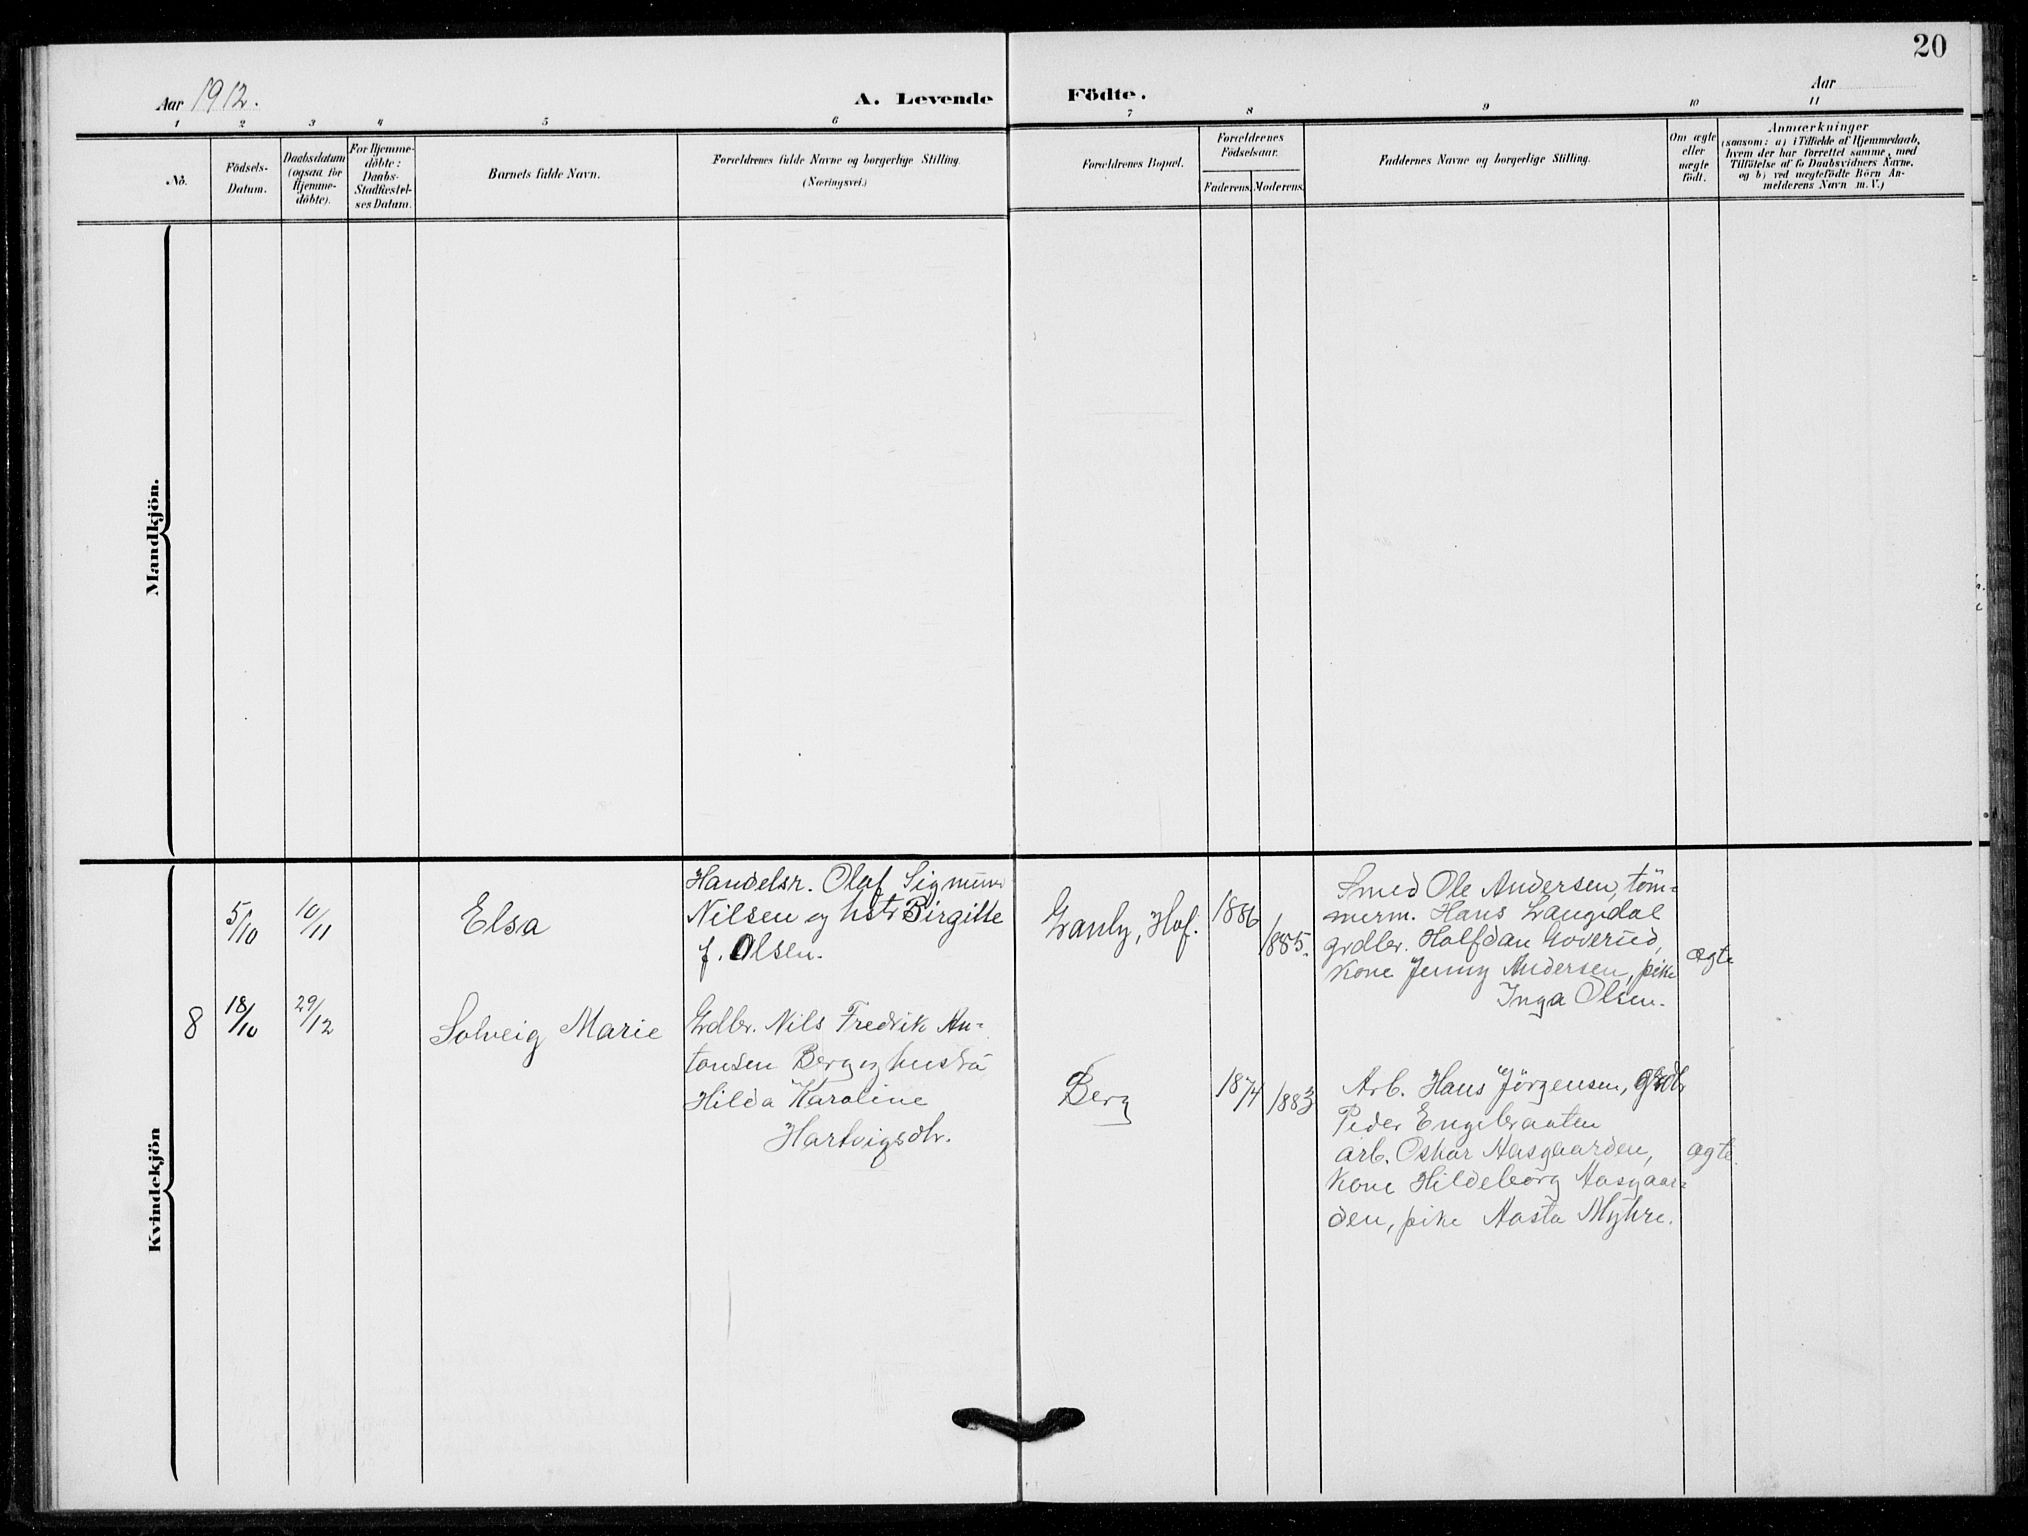 20
Aar 1912.
A. Levende Födte.
Aar
1 2 3 4 5 6 7 8 9 10 11
No.
Födsels-
Datum.
Daabsdatum
(ogsaa for
Hjemme-
döbte).
For Hjemme-
döbte:
Daabs-
Stadfæstel-
ses Datum.
Barnets fulde Navn.
Forældrenes fulde Navne og borgerlige Stilling.
(Næringsvei.)
Forældrenes Bopæl.
Forældrenes
Födselsaar.
Faderens. Moderens.
Faddernes Navne og borgerlige Stilling.
Om ægte
eller
uægte
födt.
Anmærkninger
(saasom: a) i Tilfælde af Hjemmedaab,
hvem der har forrettet samme, med
Tilföielse af to Daabsvidners Navne,
og b) ved uægtefödte Börn An-
melderens Navn m. V.)
Mandkjön.
Kvindekjön
5/10
10/11
Elsa
Handelsr. Olaf Sigmund
Nilsen og hstr Birgitte
f. Olsen.
Granly, Hof.
1886
1885.
Smed Ole Andersen, töm-
merm. Hans Langedal
grdbr. Halfdan Goverud,
kone Jenny Andersen, pike
Inga Olsen.
ægte
8
18/10
29/12
Solveig Marie
Grdbr. Nils Fredrik An-
tonsen Berg og hustru
Hilda Karoline
Hartvigsdtr.
Berg
1874
1883
Arb. Hans Jörgensen, grdb
Peder Engebraaten
arb. Oskar Aasgaarden,
kone Hildeborg Aasgaar-
den, pike Aasta Myhre.
ægte.